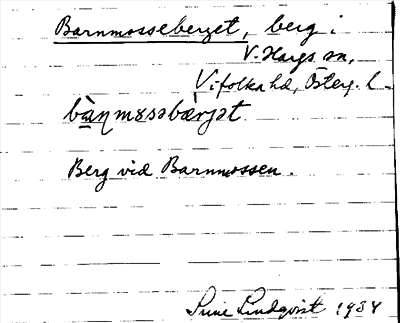 Barnmosseberget, berg i
V. Hargs sn,
Vifolka hd, Österg. l.
bà̱ɳmɵsəbærjət
Berg vid Barnmossen.
Sune Lindqvist 1934